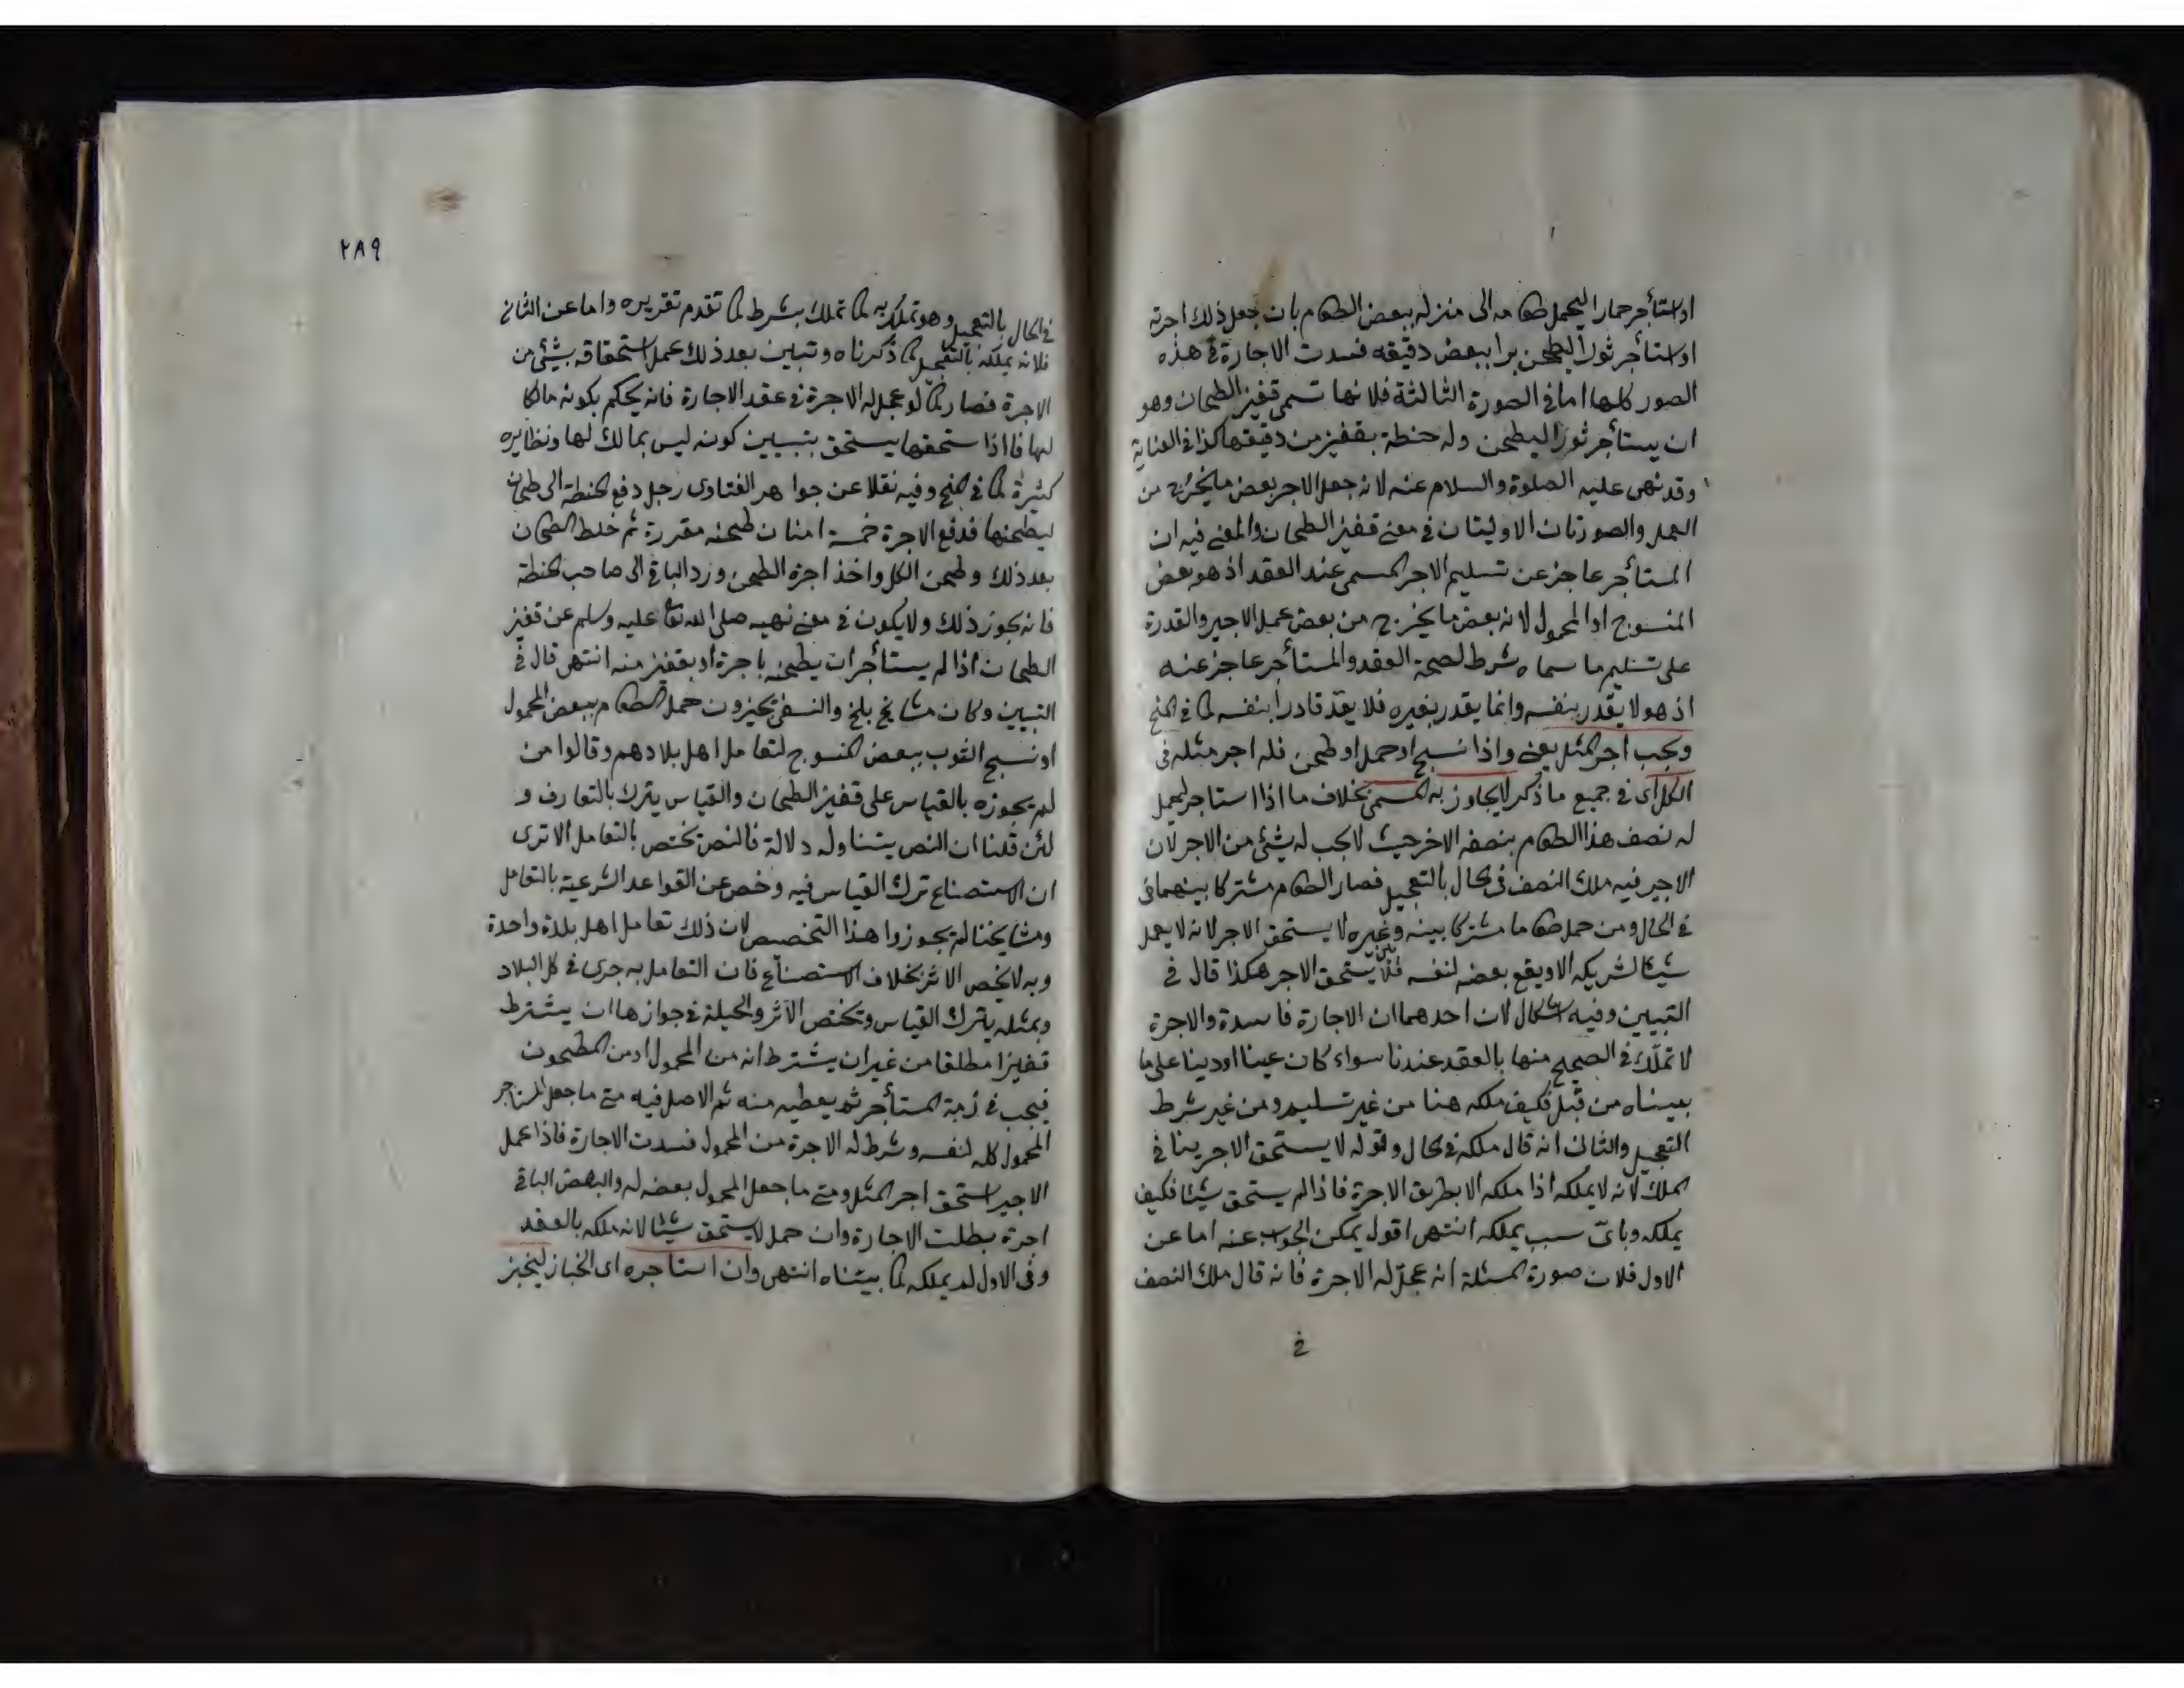 او استأجر حمارا ليحمل طعامه الى منزله ببعض الطعام بان جعل ذلك اجرته
او استأجر ثورا ليطحن برا ببعض دقيقه فسدت الاجارة في هذه
الصور كلها اما في الصورة الثالثة فلانها تسمى قفيز الطحان وهو
ان يستأجر ثورا ليطحن وله حنطة بقفيز من دقيقها كذا في العناية
وقد نهى عليه الصلوة والسلام عنه لانه جعل الاجر بعض ما يخرج من
العمل والصورتان الاوليتان في معنى قفيز الطحان والمعنى فيه ان
المستأجر عاجز عن تسليم الاجر المسمى عند العقد اذ هو بعض
المنسوج او المحمول لانه بعض ما يخرج من بعض عمل الاجير والقدرة
على تسليم ما سماه شرط لصحة العقد والمستأجر عاجز عنه
اذ هو لا يقدر بنفسه وانما يقدر بغيره فلا يعدّ قادرا بنفسه كما في المنح
ويجب اجر المثل يعني واذا نسج او حمل او طحن فله اجر مثله في
الكل اى في جميع ما ذكر لا يجاوز به المسمى بخلاف ما اذا استاجر ليحمل
له نصف هذا الطعام بنصفه الاخر حيث لا يجب له شيء من الاجر لان
الاجير فيه ملك النصف في الحال بالتعجيل فصار الطعام مشتركا بينهما في
في الحال ومن حمل طعاما مشتركا بينه وغيره لا يستحق الاجر لانه لا يعمل
شيئا لشريكه الا ويقع بعضه لنفسه فلا يستحق الاجر هكذا قال في
التبيين وفيه اشكال لان احدهما ان الاجارة فاسدة والاجرة
لا تملّك في الصحيح منها بالعقد عندنا سواء كان عينا او دينا على ما
بيناه من قبل فكيف ملكه هنا من غير تسليم ومن غير شرط
التعجيل والثاني انه قال ملكه في الحال وقوله لا يستحق الاجر ينافي
الملك لانه لا يملكه اذا ملكه الا بطريق الاجرة فاذا لم يستحق شيئا فكيف
يملكه وباىّ سبب يملكه انتهى اقول يمكن الجواب عنه اما عن
الاول فلان صورة المسئلة انه عجّل له الاجرة فانه قال ملك النصف
في
٢٨٩
في الحال بالتعجيل وهو تمليك به كما تملك بشرط كما تقدم تقريره واما عن الثاني
فلانه يملكه بالتعجيل كما ذكرناه وتبين بعد ذلك عمل استحقاقه بشيء من
الاجرة فصار كما لو عجل له الاجرة في عقد الاجارة فانه يحكم بكونه مالكا
لها فاذا استحقها يستحق بتبيين كونه ليس بمالك لها ونظايره
كثيرة كما في المنح وفيه نقلا عن جواهر الفتاوى رجل دفع الحنطة الى طحان
ليطحنها فدفع الاجرة خمسة امنان طحنه مقررة ثم خلط الطحان
بعد ذلك وطحن الكل واخذ اجرة الطحن ورد الباقي الى صاحب الحنطة
فانه يجوز ذلك ولا يكون في معنى نهيه صلى الله تعالى عليه وسلم عن قفيز
الطحان اذا لم يستأجر ان يطحنه باجرة او بقفيز منه انتهى قال في
التبيين وكان مشايخ بلخ والنسفي يجيزون حمل الطعام ببعض المحمول
او نسج الثوب ببعض المنسوج لتعامل اهل بلادهم وقالوا من
لم يجوزه بالقياس على قفيز الطحان والقياس يترك بالتعارف و
لئن قلنا ان النص يتناوله دلالة فالنص تختص بالتعامل الا ترى
ان الاستصناع ترك القياس فيه وخص عن القواعد الشرعية بالتعامل
ومشايخنا لم يجوزوا هذا التخصيص لان ذلك تعامل اهل بلدة واحدة
وبه لا يخص الاثر بخلاف الاستصناع فان التعامل به جرى في كل البلاد
وبمثله يترك القياس وتختص الاثر والحيلة في جوازها ان يشترط
قفيزا مطلقا من غير ان يشترط انه من المحمول او من المطحون
فيجب في ذمة المستأجر ثم يعطيه منه ثم الاصل فيه متى ما جعل المستاجر
المحمول كله لنفسه وشرط له الاجرة من المحمول فسدت الاجارة فاذا عمل
الاجير استحق اجر المثل ومتى ما جعل المحمول بعضه له والبعض الباقي
اجرة بطلت الاجارة وان حمل لا يستحق شيئا لانه ملكه بالعقد
وفي الاول لم يملكه كما بيناه انتهى وان استاجره اى الخباز ليخبز